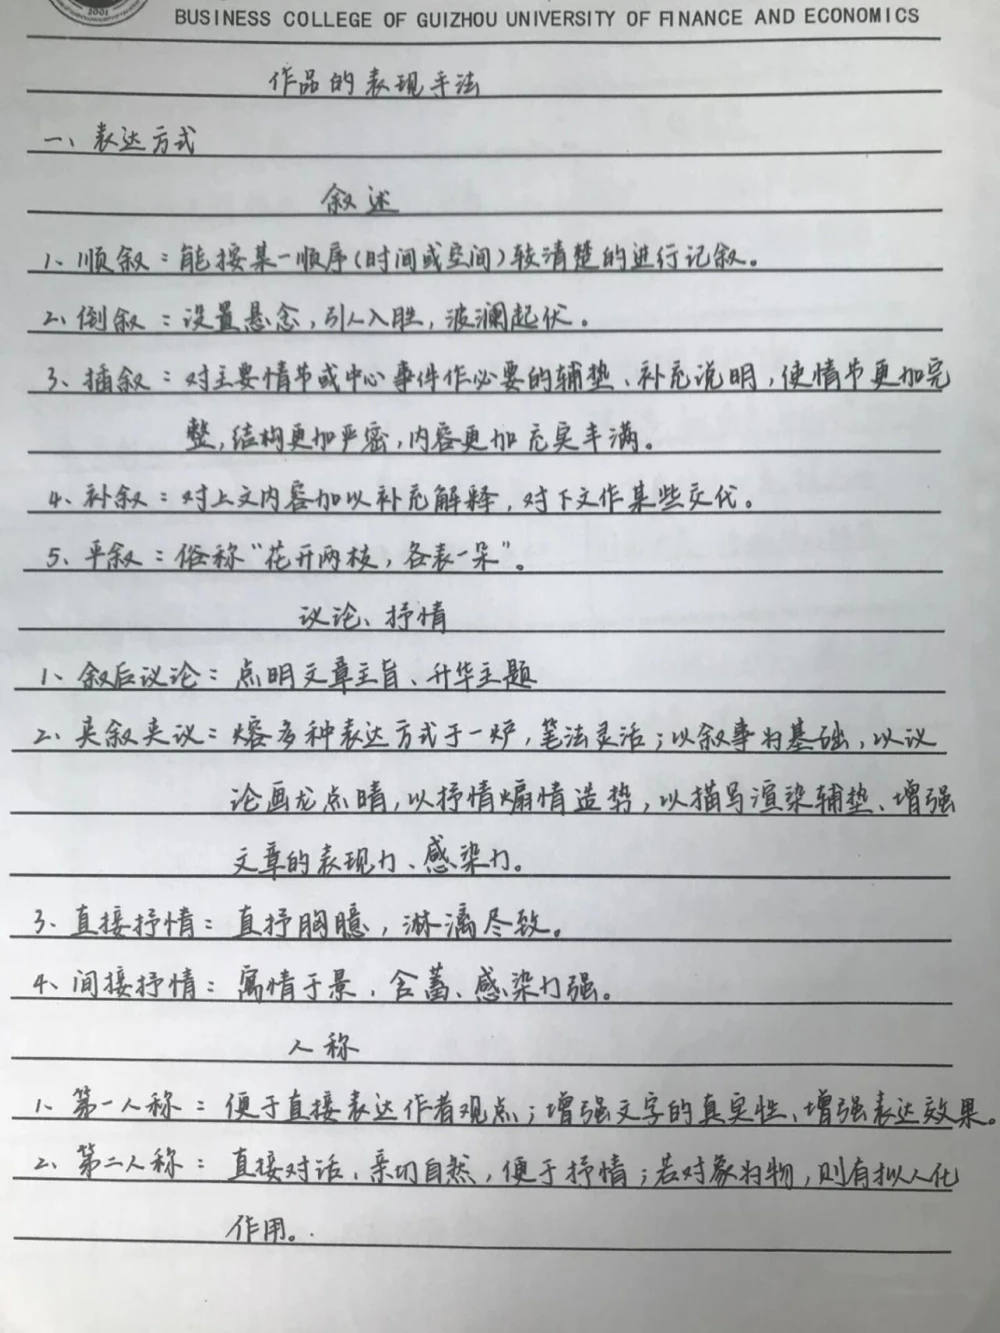 2001
BUSINESS COLLEGE OF GUIZHOU UNIVERSITY OF FINANCE AND ECONOMICS
作品的表现手法
一、表达方式
叙述
1、顺叙：能按某一顺序(时间或空间)较清楚的进行记叙。
2、倒叙：设置悬念,引人入胜,波澜起伏。
3、插叙：对主要情节或中心事件作必要的辅垫、补充说明,使情节更加完
整,结构更加严密,内容更加充实丰满。
4、补叙：对上文内容加以补充解释,对下文作某些交代。
5、平叙：俗称"花开两枝,各表一朵"。
议论、抒情
1、叙后议论：点明文章主旨、升华主题
2、夹叙夹议：熔多种表达方式于一炉,笔法灵活;以叙事为基础,以议
论画龙点晴,以抒情煽情造势,以描写渲染辅垫、增强
文章的表现力、感染力。
3、直接抒情：直抒胸臆,淋漓尽致。
4、间接抒情：寓情于景,含蓄、感染力强。
人称
1、第一人称：便于直接表达作者观点;增强文字的真实性、增强表达效果。
2、第二人称：直接对话,亲切自然,便于抒情;若对象为物,则有拟人化
作用。